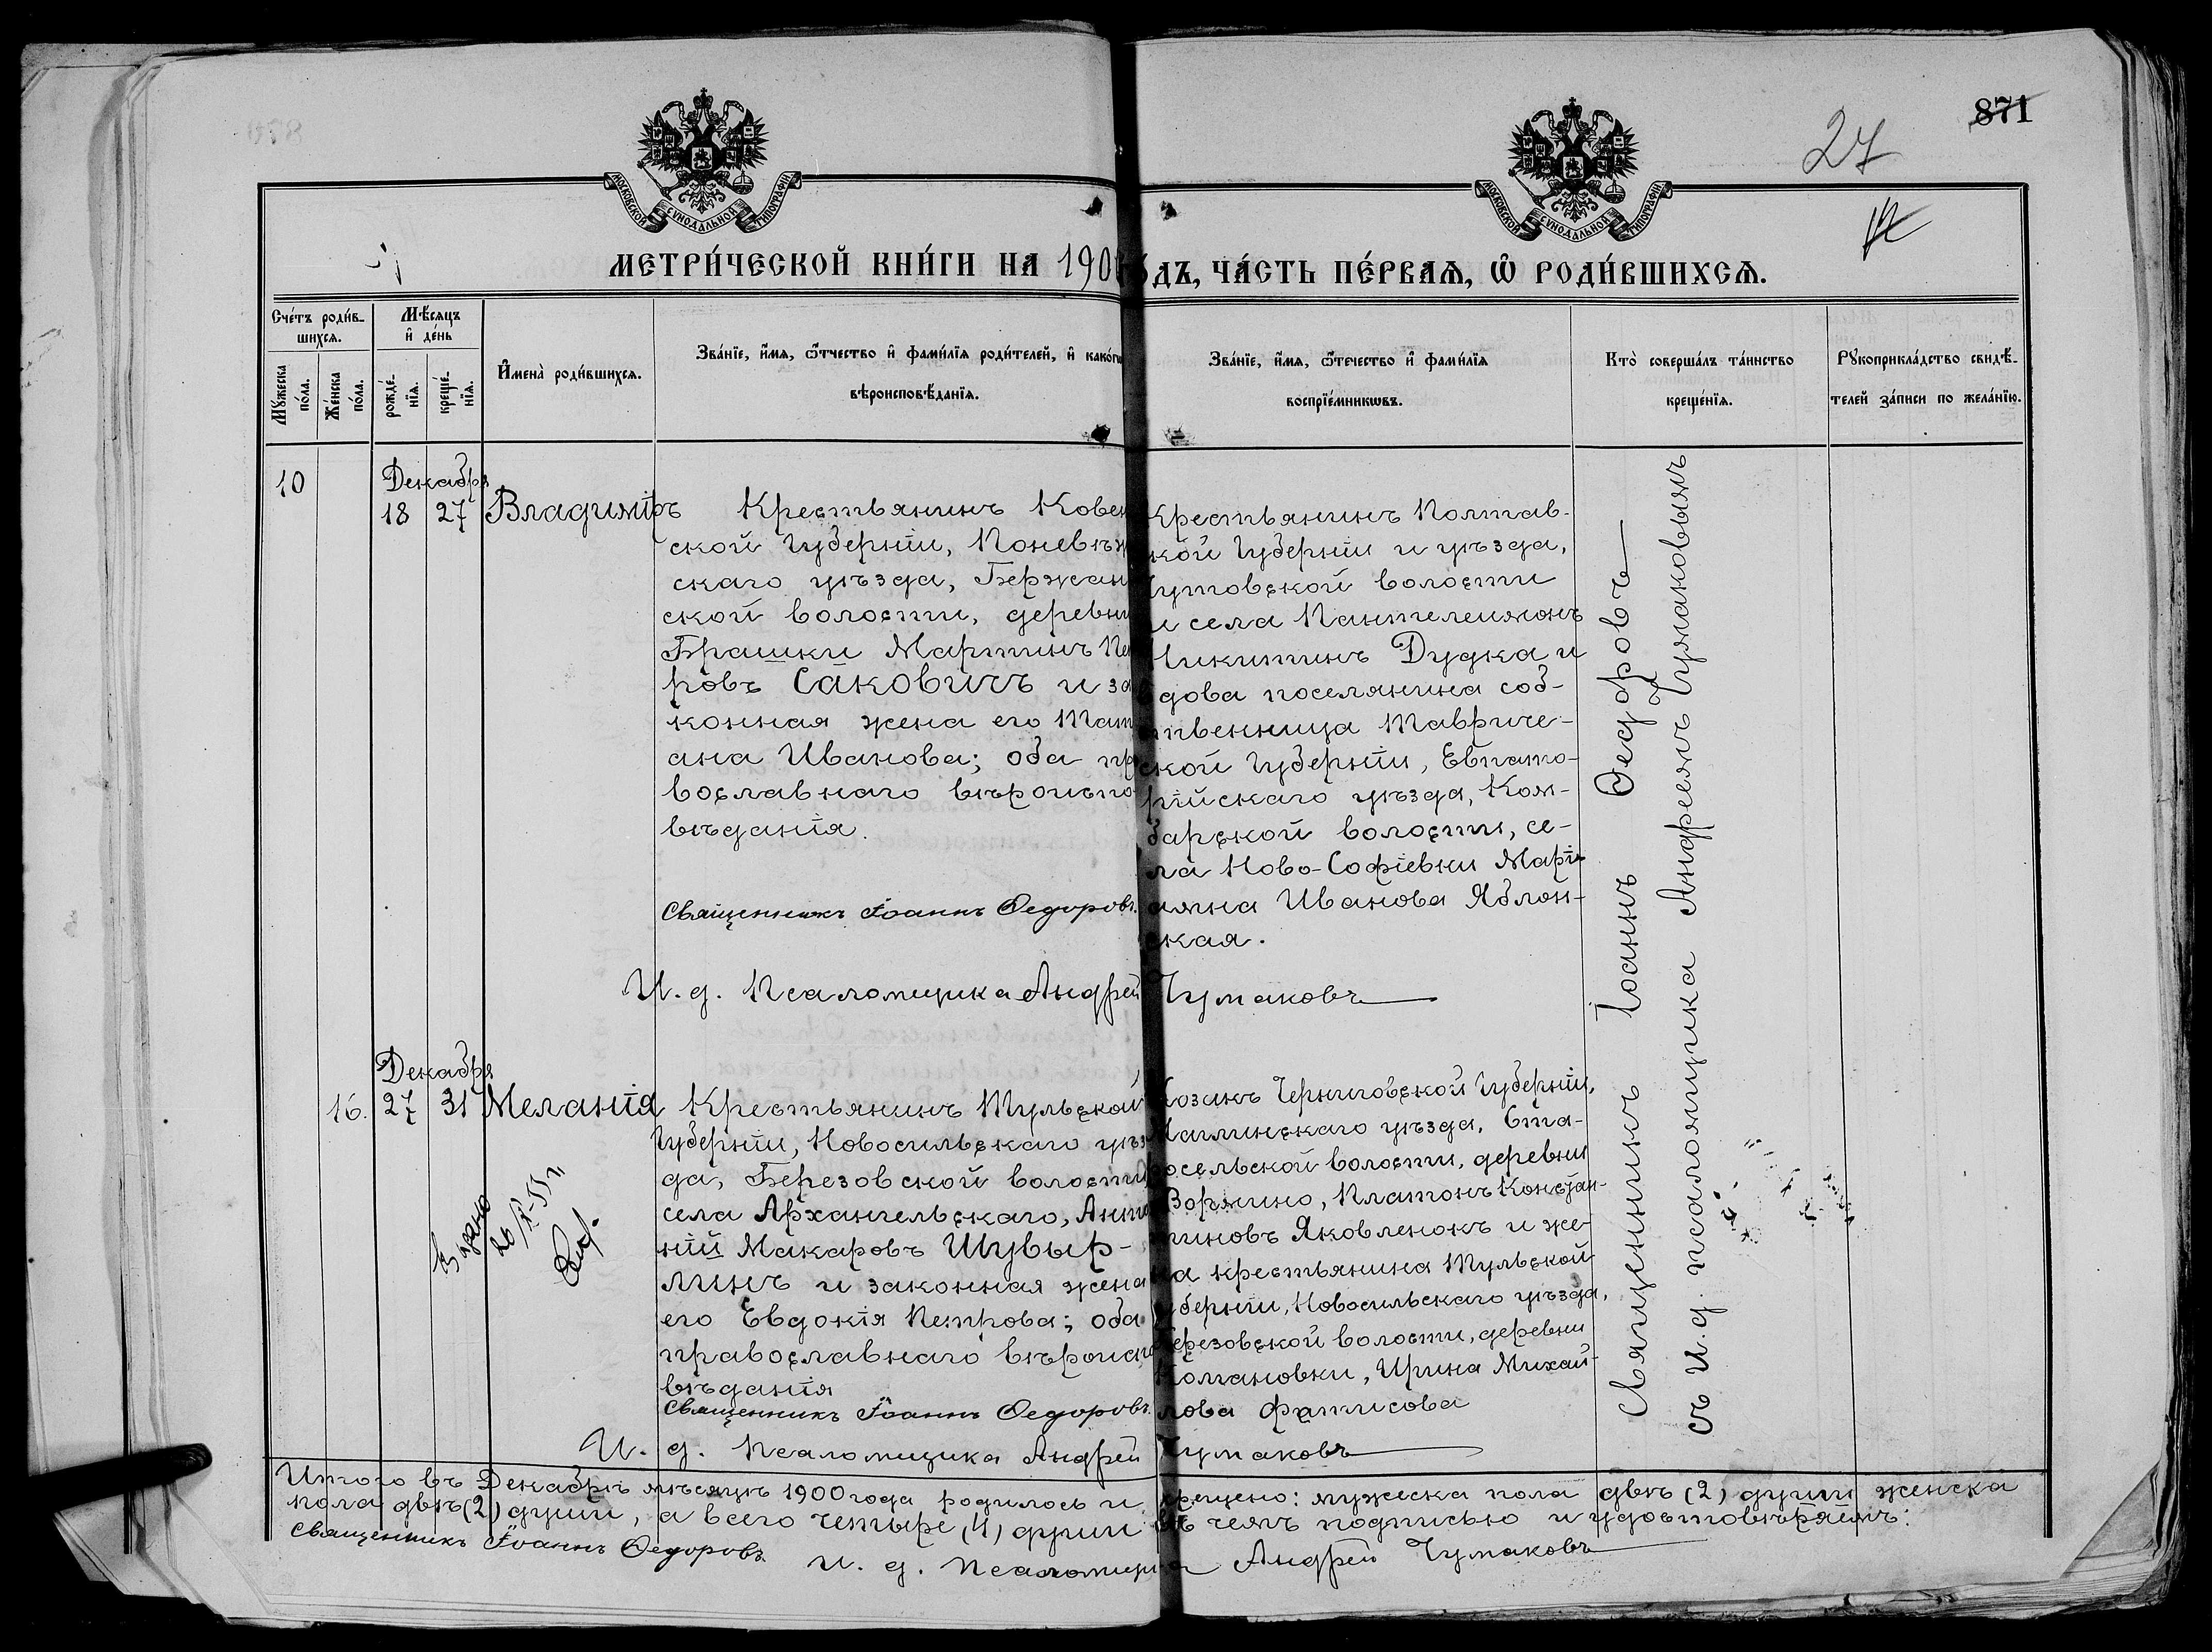 871
27
МОСКОВСКОЙ СУНОДАЛЬНОЙ ТИПОГРАФІИ
МОСКОВСКОЙ СУНОДАЛЬНОЙ ТИПОГРАФІИ
МЕТРИ́ЧЕСКОЙ КНИ́ГИ НА 1900
ѾДЪ, ЧА́СТЬ ПЕ́РВАѦ, Ѡ҆ РОДИ́ВШИХСѦ.
Сче́тъ роди́в-
шихсѧ.
Мꙋжеска по́ла.
Же́нска по́ла.
Мѣсѧцъ
и҆ де́нь
рожде́-
нїѧ.
креще́-
нїѧ.
И҆мена̀ роди́вшихсѧ.
Зва́нїе, и҆мѧ, ѻ҆́тчество и҆ фами́лїѧ роди́телей, и҆ како́гѡ
вѣроисповѣ́данїѧ.
Зва́нїе, и҆мѧ, ѻ҆́течество и҆ фами́лїѧ
воспрїе́мникѡвъ.
Кто̀ соверша́лъ та́инство
креще́нїѧ.
Рꙋкоприкла́дство свидѣ́-
телей за́писи по жела́нїю.
10
Декабря
18 27 Владиміръ
Крестьянинъ Ковен
ской Губерніи, Поневѣж
скаго уѣзда, Бержан
ской волости, деревни
Брашки Мартинъ Пет
ровъ Саковичъ и за
конная жена его Тать
ана Иванова; оба пра
вославнаго вѣроиспо
вѣданія.
Священникъ Іоаннъ Ѳедоровъ.
Крестьянинъ Полтав-
кой Губерніи и уѣзда,
Чутовской волости
и села Пантелеимонъ
Никитинъ Дудка и
вдова поселянина соб-
ственница Тавриче-
ской Губерніи, Евпато-
рійскаго уѣзда, Кам-
барской волости, се-
ла Ново-Софіевки Марі-
амна Иванова Яблон-
ская.
И. д. Псаломщика Андрей Чумаковъ
Декабря
16. 27 31 Меланія
Выдано
Крестьянинъ Тульской
Губерніи, Новосильскаго уѣз
да, Березовской волости,
села Архангельскаго, Анто
ній Макаровъ Шувыр-
линъ и законная жена
его Евдокія Петрова; оба
православнаго вѣроиспо
вѣданія
Священникъ Іоаннъ Ѳедоровъ.
Козакъ Черниговской Губерніи,
Мглинскаго уѣзда, Ста-
росельской волости, деревни
Вормино, Платонъ Констан-
тиновъ Яковленокъ и же-
на крестьянина Тульской
Губерніи, Новосильскаго уѣзда,
Березовской волости, деревни
Романовки, Ирина Михай-
лова Фатисова
И. д. Псаломщика Андрей Чумаковъ
Священникъ Іоаннъ Ѳедоровъ
съ И. д. псаломщика Андреемъ Чумаковымъ
Итого въ Декабрѣ мѣсяцѣ 1900 года родилось и крещено: мужеска пола двѣ (2) души женска
пола двѣ (2) души, а всего четыре (4) души въ чемъ подписью и удостовѣряемъ:
Священникъ Іоаннъ Ѳедоровъ
И. д. Псаломщика Андрей Чумаковъ